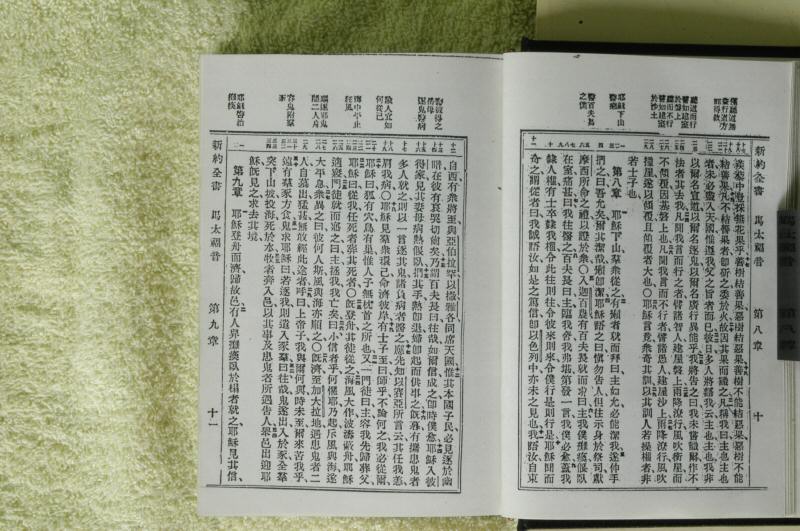 蒺藜中豈採無花果乎善樹結善果惡樹結惡果善樹不能結惡果惡樹不能
結善果凡不結善果者卽斫之委於火故因其果而識之凡稱我曰主也主也
者未必盡入天國惟遵我天父之旨者而已彼日多人將語我云主也主也我非
以爾名宣道以爾名逐鬼以爾名廣行異能乎我將告之曰我未嘗識爾作不
法者其去我凡聞我言而行之者譬諸智人建屋磐上雨降潦行風吹衝屋而
不傾覆因基磐上也凡聞我言而不行之者譬諸愚人建屋沙上雨降潦行風吹
撞屋遂以傾覆且傾覆者大也〇耶穌言竟衆奇其訓以其訓人若操權者非
若士子也
第八章 耶穌下山羣衆從之有癩者就而拜曰主如允必能潔我遂伸手
捫之曰吾允矣爾其潔哉癩卽潔耶穌語之曰愼勿告人但往示身於祭司獻
摩西所命之禮以證於衆〇入迦百農有百夫長就而求曰主我僕癱瘓偃臥
在室痛甚曰我往醫之百夫長曰主臨我舍我弗堪第發一言我僕必愈蓋我
隸人權有士卒隸我權令此往則往令彼來則來令僕行是則行是耶穌聞而
奇之謂從者曰我誠語汝如是之篤信卽以色列中亦未之見也我語汝自東
新約全書 馬太福音 第八章 十
自西有衆將至與亞伯拉罕以撒雅各同席天國惟其本國子民必見逐於幽
暗在彼有哀哭切齒矣乃謂百夫長曰往哉如爾信成之卽時僕愈耶穌入彼
得家見其妻母病熱偃臥捫其手熱卽退婦卽起而供事之旣暮有攜患鬼者
多人就之則以一言逐其鬼諸負病者醫之應先知以賽亞所言云其任我恙
肩我病〇耶穌見羣衆環己命濟彼岸有士子至曰師乎不論何之我必從爾
耶穌曰狐有穴鳥有巢惟人子無枕首之所也又一門徒曰主容我先歸葬父
耶穌曰從我任死者葬其死者〇旣登舟其徒從之海風大作波濤蔽舟耶穌
適寢門徒就而寤之曰主拯我我亡矣曰小信者乎何懼耶乃起斥風與海遂
大平息衆異之曰彼何人斯風與海亦順之〇旣濟至加大拉地遇患鬼者二
人自墓出猛甚無敢經此途者呼曰上帝子我與爾何與時未至爾來苦我乎
遠有羣豕方食鬼求耶穌曰若逐我則遣入豕羣曰往哉鬼遂出入於豕全羣
突下山坡投海死於水牧者奔入邑以其事及患鬼者所遇告人舉邑出迎耶
穌旣見之求去其境
第九章 耶穌登舟而濟歸故邑有人舁癱瘓臥於榻者就之耶穌見其信
新約全書 馬太福音 第九章 十一